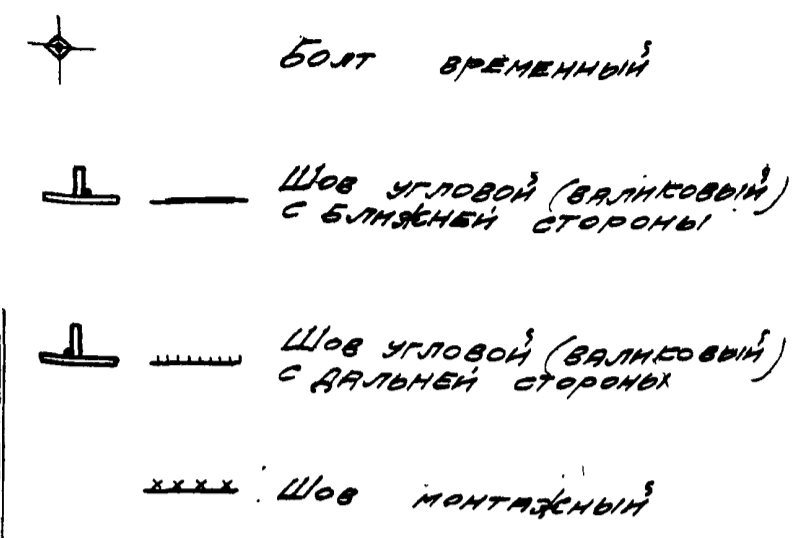 Болт временный
Шов угловой (валиковый)
с ближней стороны
Шов угловой (валиковый)
с дальней стороных
Шов монтажный